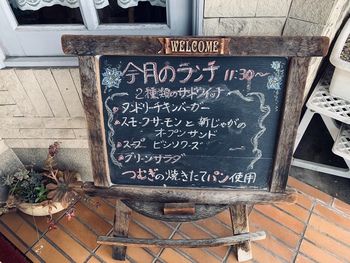 WELCOME
今月のランチ 11:30~
2種類のサンドウィッチ
タンドリーチキンバーガー
スモークサーモンと新じゃがの
オープンサンド
スープ ビシソワーズ
グリーンサラダ
つむぎの焼きたてパン使用